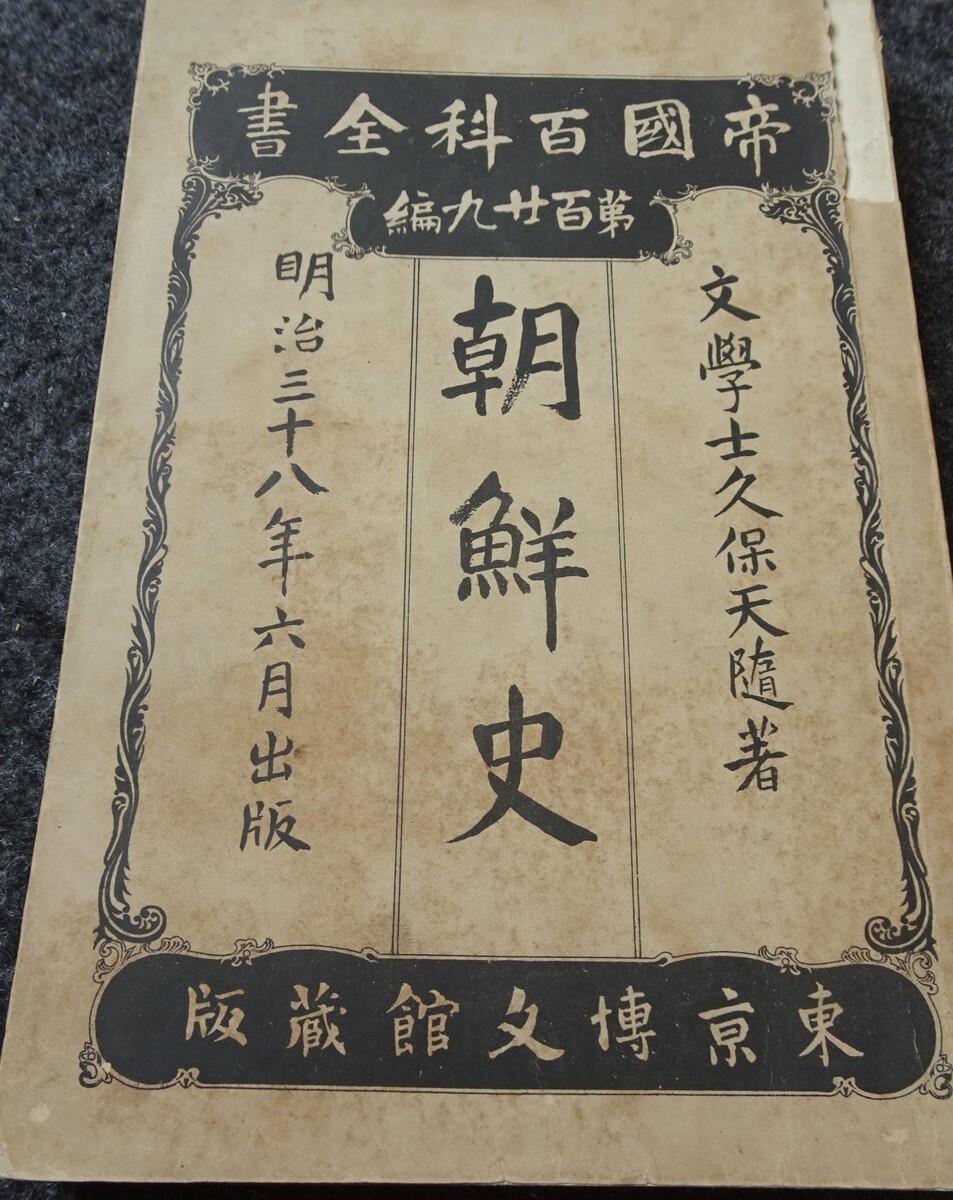 帝國百科全書
第百廿九編
文學士久保天隨著
朝鮮史
明治三十八年六月出版
東京博文館蔵版